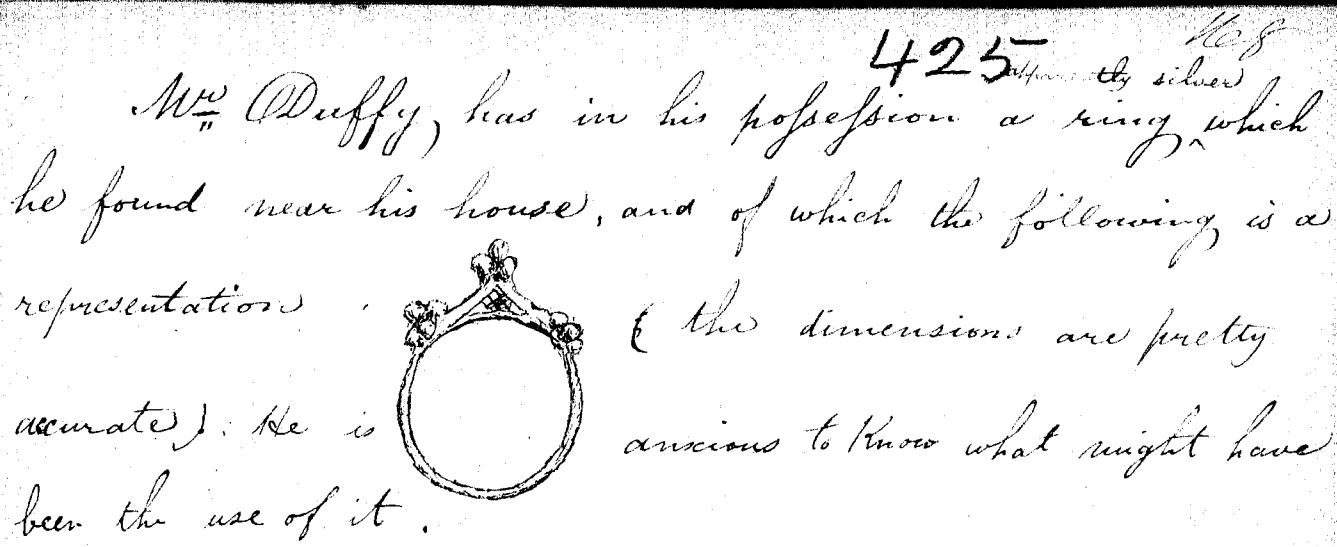 425
apparently silver
Mr Duffy, has in his possession a ring, ^ which
he found near his house, and of which the following is a
representation . ( the dimensions are pretty
accurate). He is anxious to Know what might have
been the use of it .